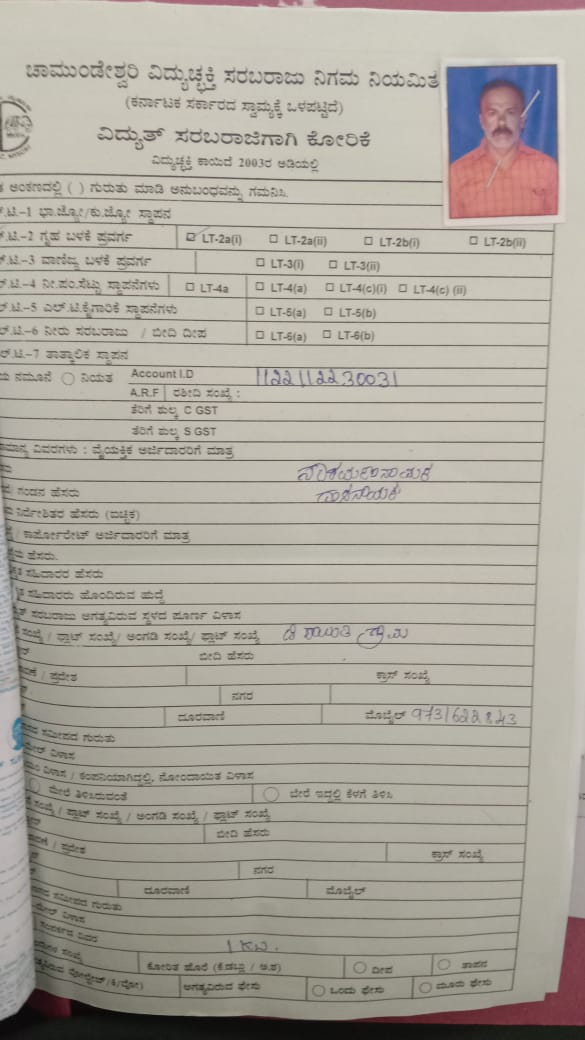 ಚಾಮುಂಡೇಶ್ವರಿ ವಿದ್ಯುಚ್ಛಕ್ತಿ ಸರಬರಾಜು ನಿಗಮ ನಿಯಮಿತ
(ಕರ್ನಾಟಕ ಸರ್ಕಾರದ ಸ್ವಾಮ್ಯಕ್ಕೆ ಒಳಪಟ್ಟಿದೆ)
ವಿದ್ಯುತ್ ಸರಬರಾಜಿಗಾಗಿ ಕೋರಿಕೆ
ವಿದ್ಯುಚ್ಛಕ್ತಿ ಕಾಯಿದೆ 2003ರ ಅಡಿಯಲ್ಲಿ
ಅಂಕಣದಲ್ಲಿ ( ) ಗುರುತು ಮಾಡಿ ಅನುಬಂಧವನ್ನು ಗಮನಿಸಿ.
.ಟಿ.-1 ಭಾ.ಜ್ಯೋ/ಕು.ಜ್ಯೋ ಸ್ಥಾಪನ
.ಟಿ.-2 ಗೃಹ ಬಳಕೆ ಪ್ರವರ್ಗ LT-2a(i) LT-2a(ii) LT-2b(i) LT-2b(ii)
.ಟಿ.-3 ವಾಣಿಜ್ಯ ಬಳಕೆ ಪ್ರವರ್ಗ LT-3(i) LT-3(ii)
.ಟಿ.-4 ನೀ.ಪಂ.ಸೆಟ್ಟು ಸ್ಥಾಪನೆಗಳು LT-4a LT-4(a) LT-4(c)(i) LT-4(c) (ii)
.ಟಿ.-5 ಎಲ್.ಟಿ.ಕೈಗಾರಿಕೆ ಸ್ಥಾಪನೆಗಳು LT-5(a) LT-5(b)
.ಟಿ.-6 ನೀರು ಸರಬರಾಜು / ಬೀದಿ ದೀಪ LT-6(a) LT-6(b)
.ಟಿ.-7 ತಾತ್ಕಾಲಿಕ ಸ್ಥಾಪನ
ನಮೂನೆ ನಿಯತ Account I.D 1122112230031
A.R.F ರಶೀದಿ ಸಂಖ್ಯೆ :
ತೆರಿಗೆ ಶುಲ್ಕ C GST
ತೆರಿಗೆ ಶುಲ್ಕ S GST
ವಿವರಗಳು : ವೈಯಕ್ತಿಕ ಅರ್ಜಿದಾರರಿಗೆ ಮಾತ್ರ
ಗಂಡನ ಹೆಸರು
ನಿರ್ದೇಶಿತರ ಹೆಸರು (ಐಚ್ಛಿಕ)
/ ಕಾರ್ಪೋರೇಟ್ ಅರ್ಜಿದಾರರಿಗೆ ಮಾತ್ರ
ಹೆಸರು.
ಸಹಿದಾರರ ಹೆಸರು
ಸಹಿದಾರರು ಹೊಂದಿರುವ ಹುದ್ದೆ
ಸರಬರಾಜು ಅಗತ್ಯವಿರುವ ಸ್ಥಳದ ಪೂರ್ಣ ವಿಳಾಸ
ಸಂಖ್ಯೆ / ಫ್ಲಾಟ್ ಸಂಖ್ಯೆ/ ಅಂಗಡಿ ಸಂಖ್ಯೆ/ ಫ್ಲಾಟ್ ಸಂಖ್ಯೆ
ಬೀದಿ ಹೆಸರು
/ ಪ್ರದೇಶ ಕ್ರಾಸ್ ಸಂಖ್ಯೆ
ನಗರ
ದೂರವಾಣಿ ಮೊಬೈಲ್ 9731622843
ಸಮೀಪದ ಗುರುತು
ವಿಳಾಸ
ವಿಳಾಸ / ಕಂಪನಿಯಾಗಿದ್ದಲ್ಲಿ, ನೋಂದಾಯಿತ ವಿಳಾಸ
ಮೇಲೆ ತಿಳಿಸಿರುವಂತೆ ಬೇರೆ ಇದ್ದಲ್ಲಿ ಕೆಳಗೆ ತಿಳಿಸಿ
ಸಂಖ್ಯೆ / ಫ್ಲಾಟ್ ಸಂಖ್ಯೆ / ಅಂಗಡಿ ಸಂಖ್ಯೆ / ಫ್ಲಾಟ್ ಸಂಖ್ಯೆ
ಬೀದಿ ಹೆಸರು
/ ಪ್ರದೇಶ ಕ್ರಾಸ್ ಸಂಖ್ಯೆ
ನಗರ
ದೂರವಾಣಿ ಮೊಬೈಲ್
ಸಮೀಪದ ಗುರುತು
ವಿಳಾಸ
ವಿವರ 1 KW.
ಸಂಖ್ಯೆ ಕೋರಿತ ಹೊರೆ (ಕೆ.ಡಬ್ಲು / ಅ.ಶ) ದೀಪ ತಾಪನ
ಅಗತ್ಯವಿರುವ ಫೇಸು ಒಂದು ಫೇಸು ಮೂರು ಫೇಸು